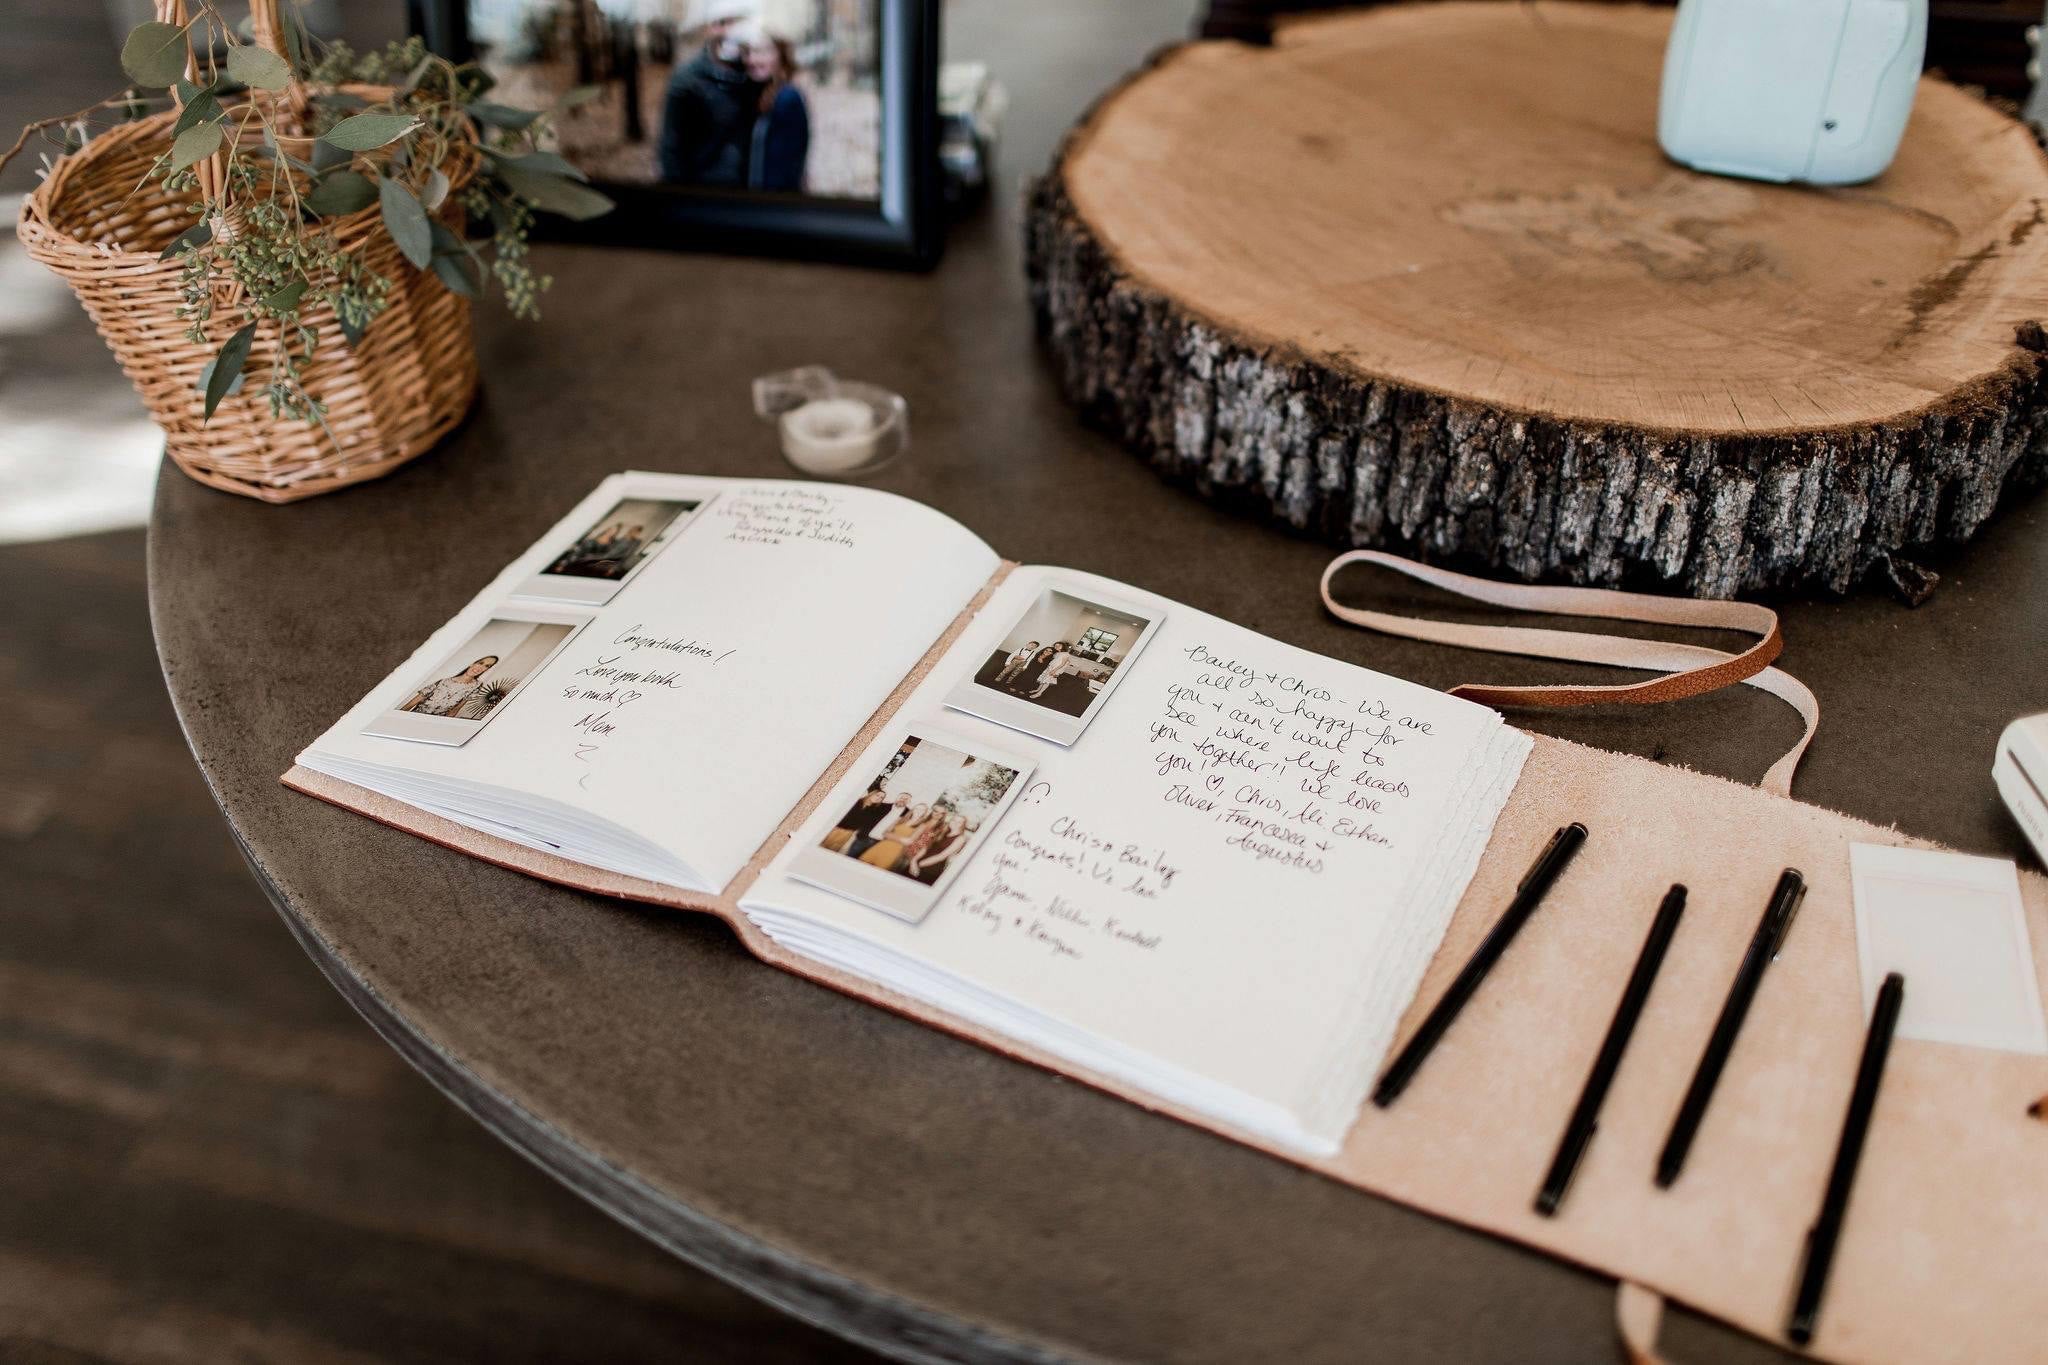 Chris & Bailey –
Congratulations!
Very Proud of ya'll
Reynaldo & Judith
Congratulations!
Love you both
so much ♡
Mom
Bailey & Chris - We are
all so happy for
you & can't wait to
see where life leads
you together!! We love
you! ♡, Chris, Ali, Ethan,
Oliver, Francesca &
Augustus
Chris & Bailey
Congrats! We love
you!
Kelsey &